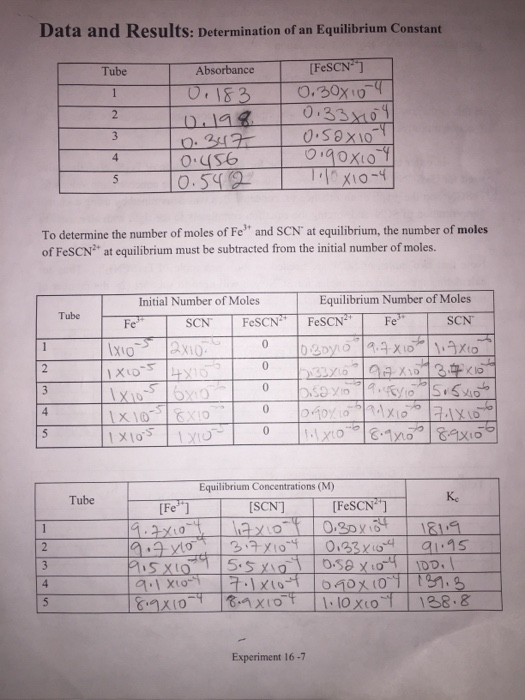 Data and Results: Determination of an Equilibrium Constant
Tube Absorbance [FeSCN²⁺]
1 0.183 0.30x10⁻⁴
2 0.198 0.33x10⁻⁴
3 0.347 0.58x10⁻⁴
4 0.456 0.90x10⁻⁴
5 0.542 1.1 x10⁻⁴
To determine the number of moles of Fe³⁺ and SCN⁻ at equilibrium, the number of moles
of FeSCN²⁺ at equilibrium must be subtracted from the initial number of moles.
Tube Initial Number of Moles Equilibrium Number of Moles
Fe³⁺ SCN⁻ FeSCN²⁺ FeSCN²⁺ Fe³⁺ SCN⁻
1 1x10⁻⁵ 2x10⁻⁶ 0 0.30x10⁻⁶ 9.7x10⁻⁶ 1.7x10⁻⁶
2 1x10⁻⁵ 4x10⁻⁶ 0 0.33x10⁻⁶ 9.7x10⁻⁶ 3.7x10⁻⁶
3 1x10⁻⁵ 6x10⁻⁶ 0 0.52x10⁻⁶ 9.5x10⁻⁶ 5.5x10⁻⁶
4 1x10⁻⁵ 8x10⁻⁶ 0 0.90x10⁻⁶ 9.1x10⁻⁶ 7.1x10⁻⁶
5 1x10⁻⁵ 1x10⁻⁵ 0 1.1x10⁻⁶ 8.9x10⁻⁶ 8.9x10⁻⁶
Tube Equilibrium Concentrations (M) Kc
[Fe³⁺] [SCN⁻] [FeSCN²⁺]
1 9.7x10⁻⁴ 1.7x10⁻⁴ 0.30x10⁻⁴ 181.9
2 9.7x10⁻⁴ 3.7x10⁻⁴ 0.33x10⁻⁴ 91.95
3 9.5x10⁻⁴ 5.5x10⁻⁴ 0.52x10⁻⁴ 100.1
4 9.1x10⁻⁴ 7.1x10⁻⁴ 0.90x10⁻⁴ 139.3
5 8.9x10⁻⁴ 8.9x10⁻⁴ 1.10x10⁻⁴ 138.8
Experiment 16-7